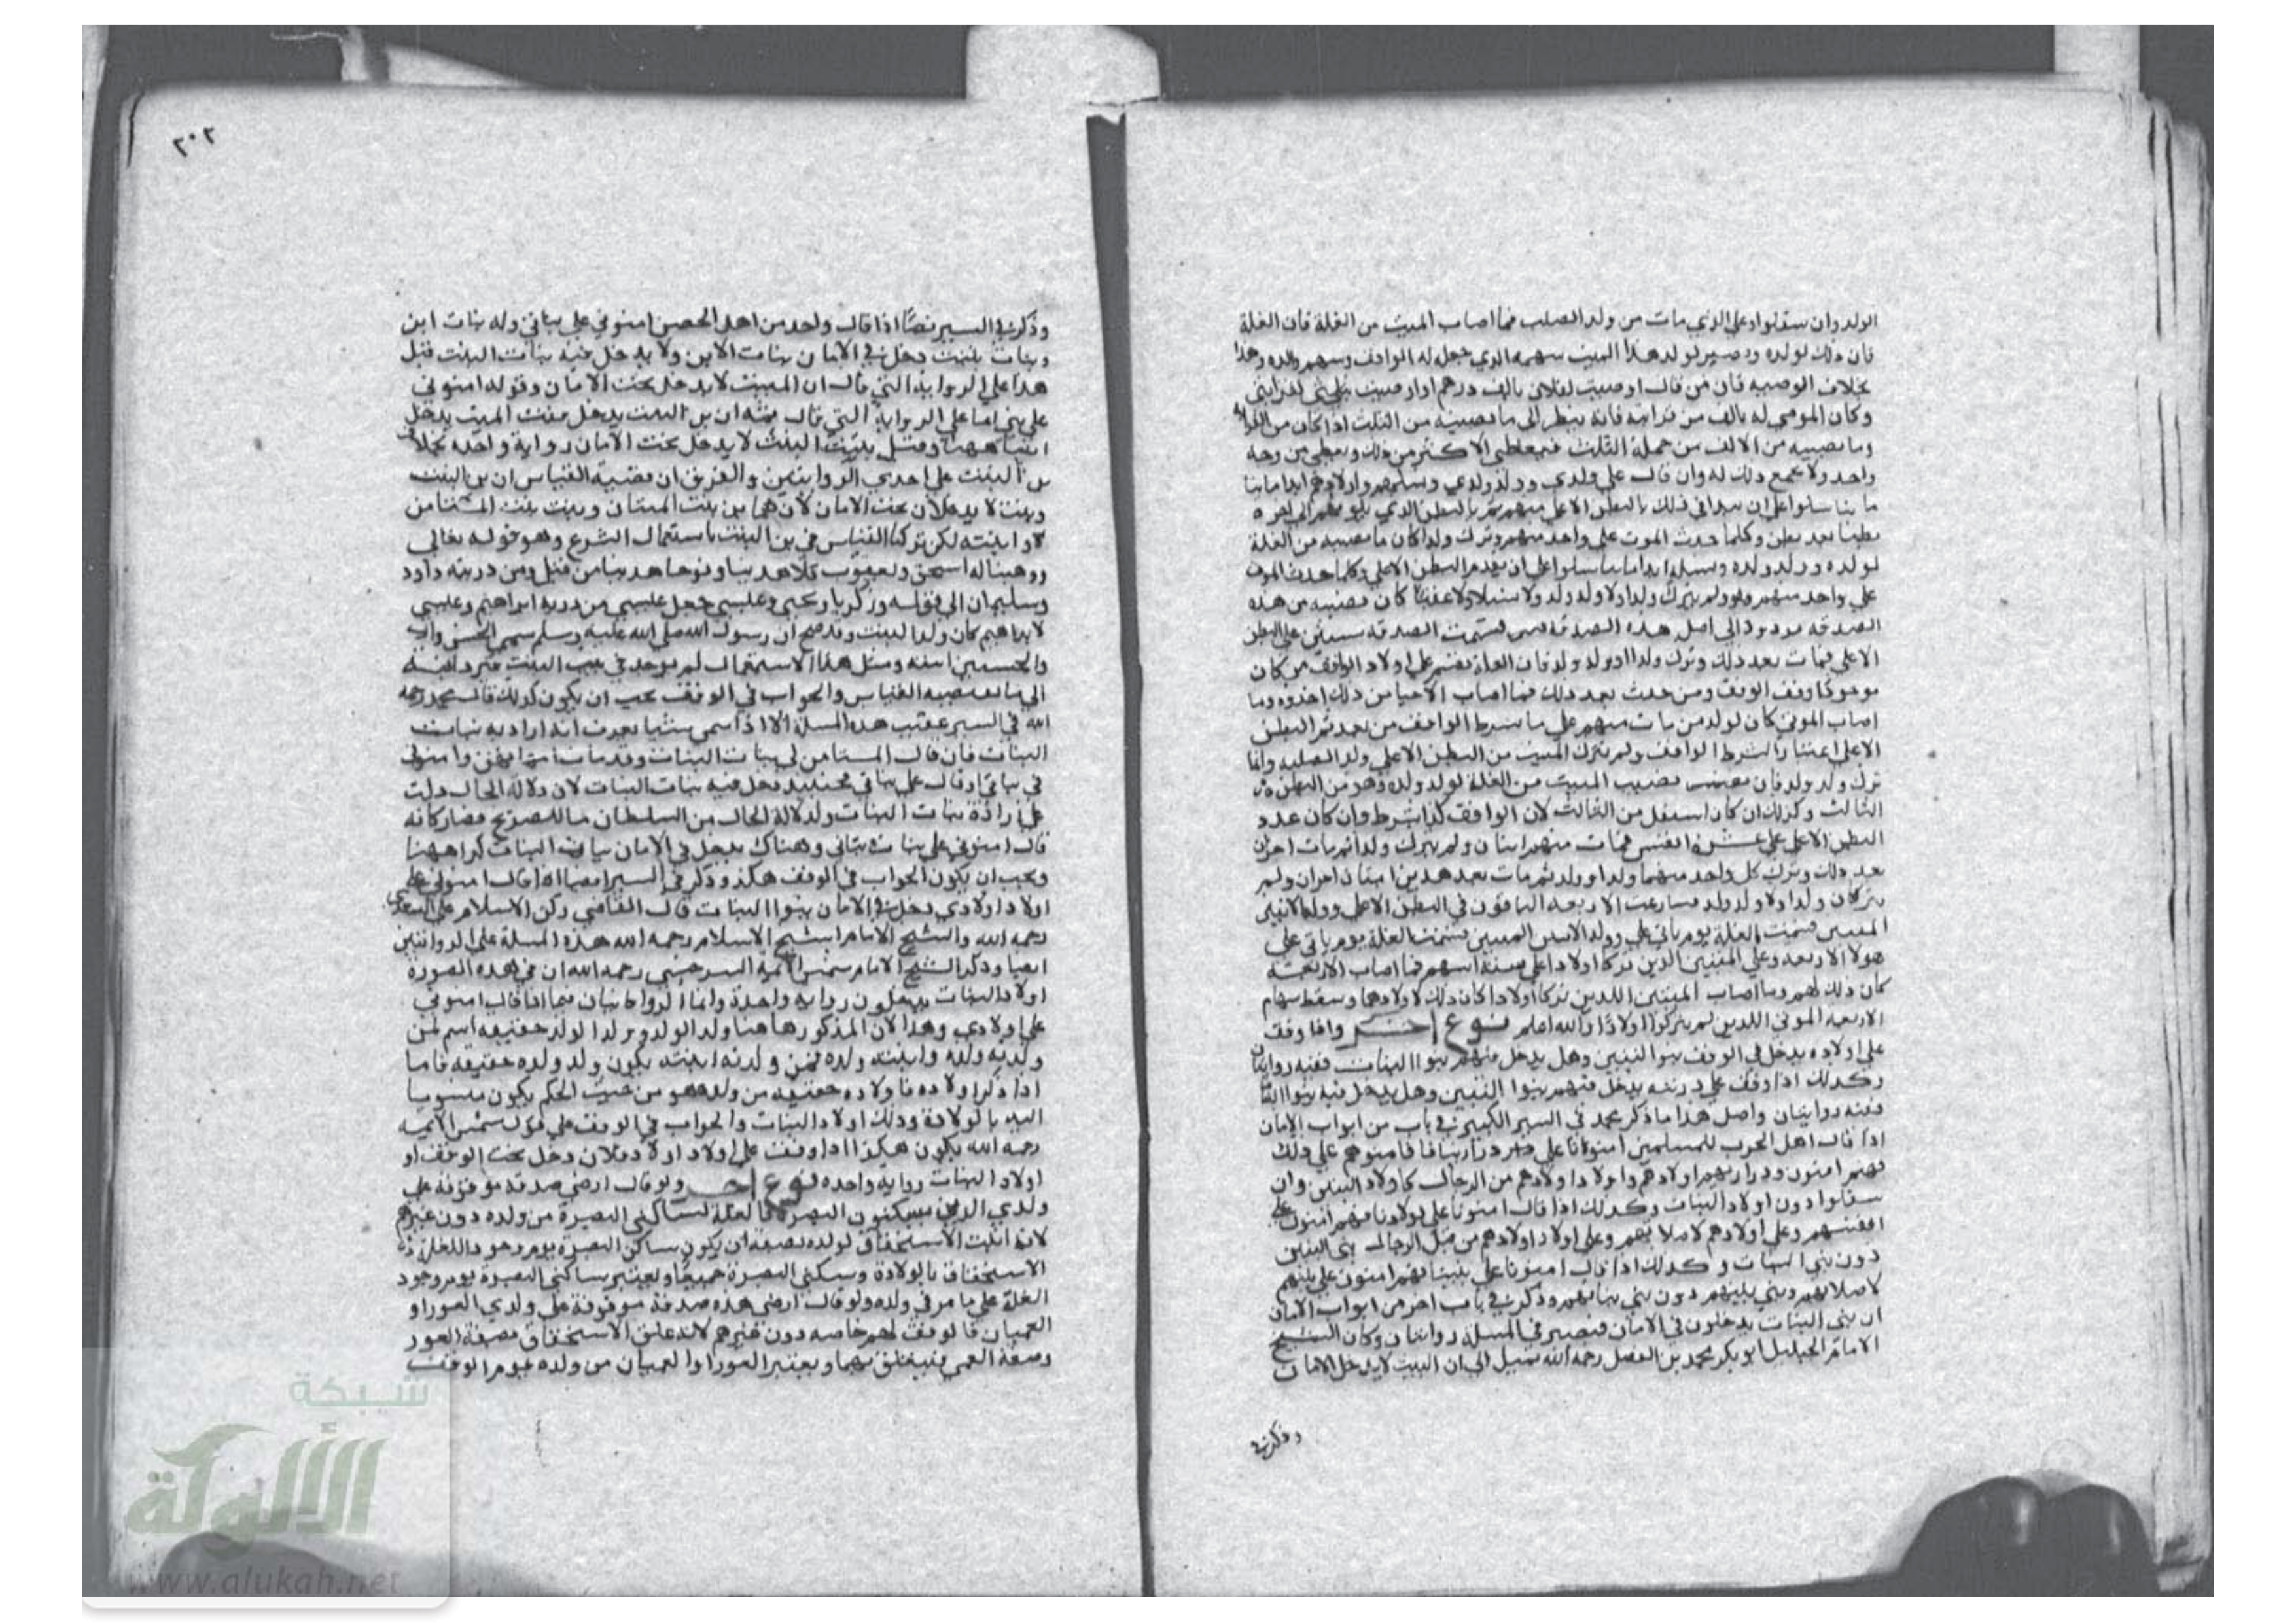 الولد وان سفلوا وعلى الذي مات من ولد الصلب فما اصاب الميت من الغلة فان الغلة
فان ذلك لولده ويصير لولد هذا الميت سهمه الذي جعل له الواقف وسهم والده وهذا
بخلاف الوصية فان من قال اوصيت لفلان بالف درهم واوصيت لقرابتي
وكان الموصى له بالف من قرابته فانه ينظر الى ما يصيبه من الثلث اذا كان من القرابة
وما يصيبه من الالف من جملة الثلث فيعطى الاكثر من ذلك ويعطى من وجه
واحد ولا يجمع ذلك له وان قال على ولدي وولد ولدي ونسلهم واولادهم ابدا ما
تناسلوا على ان يبدا في ذلك بالبطن الاعلى منهم ثم بالبطن الذي يلونهم الى اخره
بطنا بعد بطن وكلما حدث الموت على واحد منهم وترك ولدا كان ما يصيبه من الغلة
لولده وولد ولده ونسله ابدا ما تناسلوا على ان يقدم البطن الاعلى وكلما حدث الموت
على واحد منهم ولم يترك ولدا ولا ولد ولد ولا نسلا ولا عقبا كان نصيبه من هذه
الصدقة مردودا الى اصل هذه الصدقة قسمت الصدقة على البطن
الاعلى فمات بعد ذلك وترك ولدا وولد ولد فان الغلة تقسم على اولاد الواقف من كان
موجودا وقف الوقف ومن حدث بعد ذلك فما اصاب الاحيا من ذلك اخذوه وما
اصاب الموتى كان لولد من مات منهم على ما شرط الواقف من بعد ثم البطن
الاعلى اعتبارا لشرط الواقف ولم يترك الميت من البطن الاعلى ولد الصلبه وانما
ترك ولد ولد فان نصيب الميت من الغلة لولد ولده وهو من البطن
الثالث وكذلك ان كان اسفل من الثالث لان الواقف كذا شرط وان كان عدد
البطن الاعلى عشرة انفس فمات منهم اثنان ولم يترك ولدا ثم مات اخران
بعد ذلك وترك كل واحد منهما ولدا وولد ثم مات بعد هذين اثنان اخران ولم
يتركان ولدا ولا ولد ولد الاربعة الباقون في البطن الاعلى
الميتين قسمت الغلة يوم ياتي على وولد الميتين قسمت الغلة يوم ياتي على
هولا الاربعة وعلى الميتين الذين تركا اولادا على ستة اسهم فما اصاب الاربعة
كان ذلك لهم وما اصاب الميتين اللذين تركا اولادا كان ذلك لاولادهما وسقط سهام
الاربعة الموتى اللذين لم يتركوا اولادا والله اعلم نوع اخر واذا وقف
على اولاده يدخل في الوقف بنوا البنين وهل يدخل فيهم بنوا البنات ففيه روايتان
وكذلك اذا وقف على ذريته يدخل فيهم بنوا البنين وهل يدخل فيه بنوا البنات
ففيه روايتان واصل هذا ما ذكر محمد في السير الكبير في باب من ابواب الامان
اذا قال اهل الحرب للمسلمين امنونا على ذرارينا فامنوهم على ذلك
فهم امنون وذراريهم اولادهم واولاد اولادهم من الرجال كاولاد البنين وان
سفلوا دون اولاد البنات وكذلك اذا قال امنونا على اولادنا فهم امنون على
انفسهم وعلى اولادهم لاصلابهم وعلى اولاد اولادهم من قبل الرجال بني البنين
دون بني البنات وكذلك اذا قال امنونا على بنينا فهم امنون على بنيهم
لاصلابهم وبني بنيهم دون بني بناتهم وذكر في باب اخر من ابواب الامان
ان بني البنات يدخلون في الامان فتصير في المسلة روايتان وكان الشيخ
الامام الجليل ابو بكر محمد بن الفضل رحمه الله يميل الى ان البنت لا يدخل الامان
وذكر في
٢٠٢
وذكر في السير نصا اذا قال واحد من اهل الحصن امنوني على بناتي وله بنات ابن
وبنات بنت دخل في الامان بنات الابن ولا يدخل فيه بنات البنت قيل
هذا على الرواية التي قال ان البنت لا يدخل تحت الامان وقوله امنوني
على بني اما على الرواية التي قال ثمة ان بن البنت يدخل بنت الميت يدخل
ايضا ههنا وقيل بنت البنت لا يدخل تحت الامان رواية واحدة بخلاف
بن البنت على احدى الروايتين والفرق ان قضية القياس ان بن البنت
وبنت لا يدخلان تحت الامان لان هما بن بنت المستامن وبنت بنت المستامن
لا ابنته لكن تركنا القياس في بن البنت باستعمال الشرع وهو قوله تعالى
ووهبنا له اسحق ويعقوب كلا هدينا ونوحا هدينا من قبل ومن ذريته داود
وسليمان الى قوله وزكريا ويحيى وعيسى جعل عيسى من ذرية ابراهيم وعيسى
لابراهيم كان ولد البنت وقد صح ان رسول الله صلى الله عليه وسلم سمى الحسن
والحسين ابنه ومثل هذا الاستعمال لم يوجد في بنت البنت فيرد فيه
الى ما يقتضيه القياس والجواب في الوقف يجب ان يكون كذلك قال محمد رحمه
الله في السير عقيب هذه المسلة الا اذا سمى شيا يعرف انه اراد به بنات
البنات فان قال المستامن لي بنات البنات وقد مات امهاتهن وامنوني
في بناتي او قال على بناتي فحينئذ يدخل فيه بنات البنات لان دلالة الحال دلت
على ارادة بنات البنات ولدلالة الحال من السلطان ما للتصريح فصار كانه
قال امنوني على بنات بناتي وهناك يدخل في الامان بنات البنات كذا ههنا
ويجب ان يكون الجواب في الوقف هكذا وذكر في السير ايضا اذا قال امنوني على
اولاد اولادي دخل في الامان بنوا البنات قال القاضي ركن الاسلام علي السغدي
رحمه الله والشيخ الامام شيخ الاسلام رحمه الله هذه المسلة على الروايتين
ايضا وذكر الشيخ الامام شمس الايمة السرخسي رحمه الله ان في هذه الصورة
اولاد البنات يدخلون رواية واحدة وانما الروايتان فيما اذا قال امنوني
على اولادي وهذا لان المذكور هاهنا ولد الولد وولد الولد حقيقة اسم لمن
ولدته ولده وابنته ولده فمن ولدته ابنته يكون ولد ولده حقيقة فاما
اذا ذكر اولاده فاولاده حقيقة من ولده هو من حيث الحكم يكون منسوبا
اليه بالولادة وذلك اولاد البنات والجواب في الوقف على قول شمس الايمة
رحمه الله يكون هكذا اذا وقف على اولاد اولاد فلان دخل تحت الوقف
اولاد البنات رواية واحدة نوع اخر ولو قال ارضي صدقة موقوفة على
ولدي الذين يسكنون البصرة فالغلة لساكني البصرة من ولده دون غيرهم
لانه اثبت الاستحقاق لولده بصفة ان يكون ساكن البصرة يوم وجود الغلة
الاستحقاق بالولادة وسكنى البصرة جميعا ويعتبر ساكني البصرة يوم وجود
الغلة على ما مر في ولده ولو قال ارضي هذه صدقة موقوفة على ولدي العور او
العميان فالوقف لهم خاصة دون غيرهم لانه علق الاستحقاق بصفة العور
وصفة العمي فيتعلق بهما ويعتبر العور او العميان من ولده يوم الوقف
شبكة
الألوكة
www.alukah.net